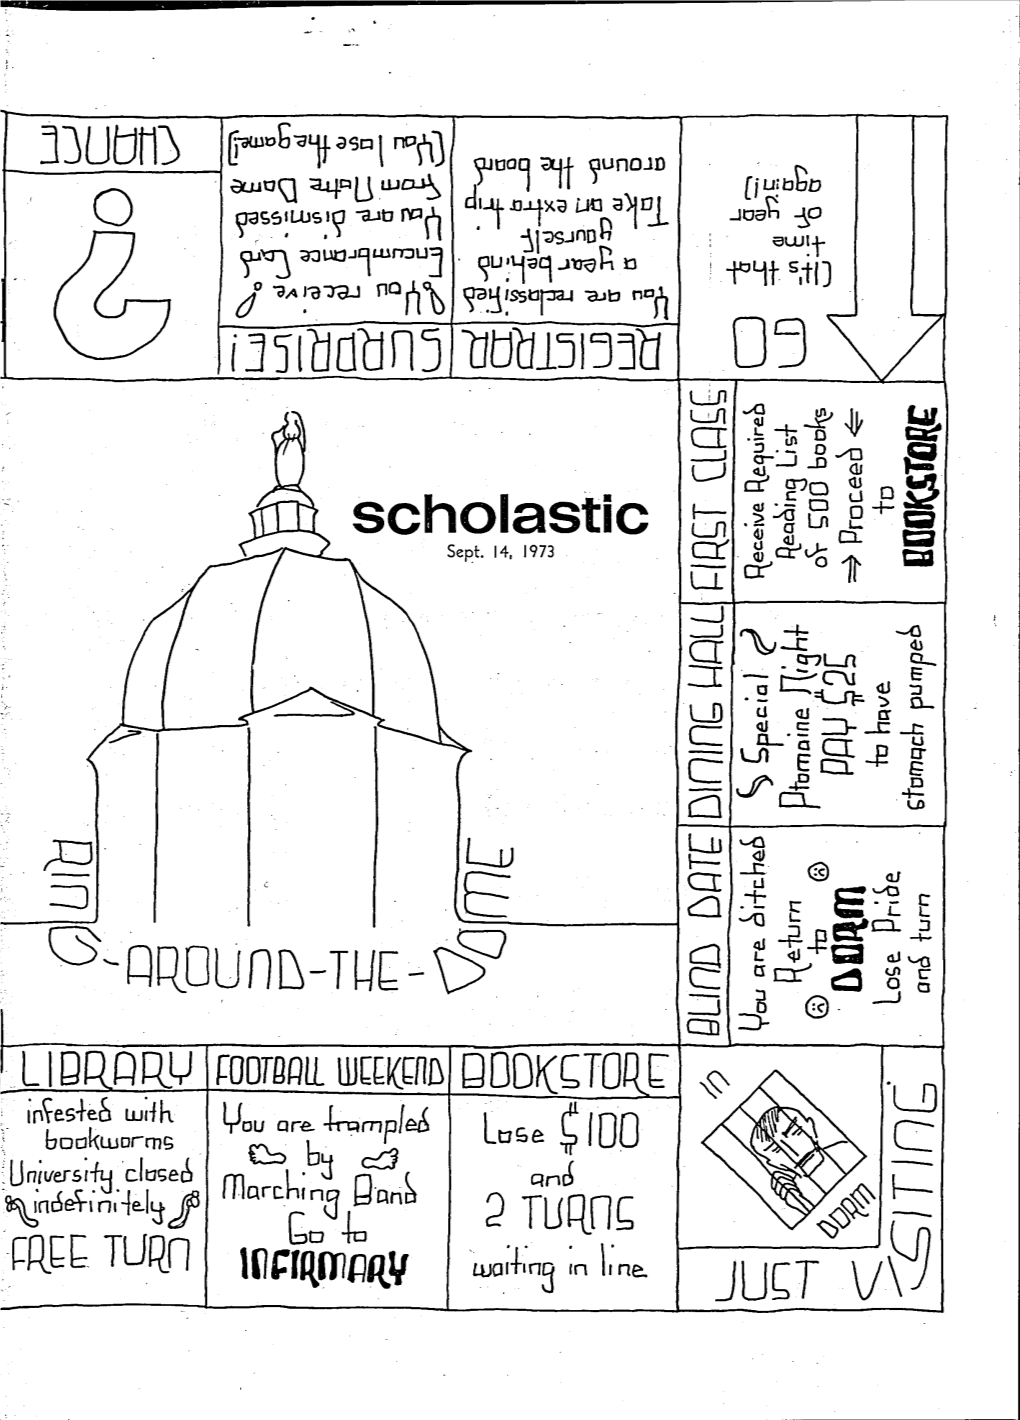 CHANCE
?
SURPRISE!
¿You receive?
Encumbrance Card
You are dismissed
from Notre Dame
(You lose the game!)
REGISTRAR
You are reclassified
a year behind
yourself
Take an extra trip
around the board
GO
(It's that
time
of year
again!)
scholastic
Sept. 14, 1973
RING-AROUND-THE-DOME
FIRST CLASS
Receive Required
Reading List
of 500 books
⇒ Proceed ⇐
to
BOOKSTORE
DINING HALL
Special
Ptomaine Night
PAY $25
to have
stomach pumped
BLIND DATE
You are ditched
Return
to
DORM
Lose Pride
and turn
IN
DORM
JUST VISITING
BOOKSTORE
Lose $100
and
2 TURNS
waiting in line
FOOTBALL WEEKEND
You are trampled
by
Marching Band
Go to
INFIRMARY
LIBRARY
infested with
bookworms
University closed
indefinitely
FREE TURN